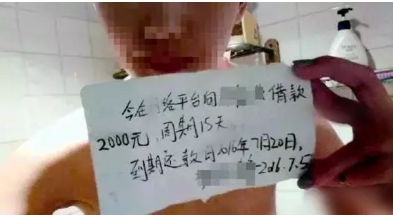 今在 络平台向 借款
2000元,周期15天
到期还款日2016年7月20日。
2016.7.5